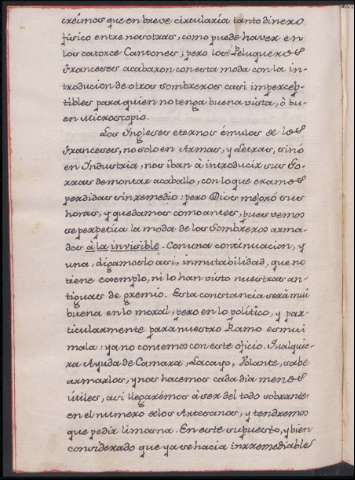 creímos que en breve circularía tanto dinero
físico entre nosotras, como puede haver en
los catorce Cantones; pero los Peluqueros
Franceses acabaron con esta moda con la in-
troducion de otros sombreros casi impercep-
tibles para quien no tenga buena vista, ó bu-
en Microscopio.
Los Ingleses eternos émulos de los
Franceses, no solo en Armas, y Letras, sinó
en Industria, nos iban á introducir sus Go-
rras de montar acaballo, con lo que eramos
perdidas sin remedio: pero Dios mejoró sus
horas, y quedamos como antes, pues vemos
se perpetúa la moda de los Sombreros arma-
dos á la invisible. Con una continuacion, y
una, digamoslo asi, inmutabilidad, que no
tiene exemplo, ni lo han visto nuestras an-
tiguas de gremio. Esta constancia será mui
buena en lo moral, pero en lo politico, y par-
ticularmente para nuestro Ramo es mui
mala: ya no comemos con este oficio. Qualquie-
ra Ayuda de Camara, Lacayo, Volante, sabe
armarlos, y nos hacemos cada dia menos
útiles, asi llegarémos á ser del todo sobrantes
en el numero de los Artesanos, y tendremos
que pedir limosna. En este supuesto, y bien
considerado que ya se hacia irremediable